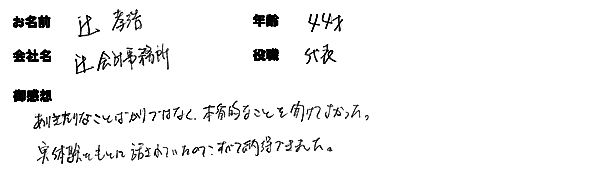 お名前 辻 孝浩 年齢 44才
会社名 辻会計事務所 役職 代表
御感想
ありきたりなことばかりではなく、本質的なことを聞けてよかった。
実体験をもとに話されていたので、すべて納得できました。